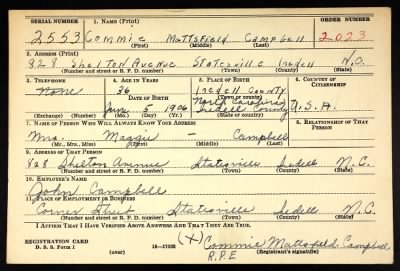 SERIAL NUMBER 1. NAME (Print) ORDER NUMBER
2553 Commie Mattsfield Campbell 2023
(First) (Middle) (Last)
2. ADDRESS (Print)
828 Shelton Avenue Statesville Iredell N.C.
(Number and street or R. F. D. number) (Town) (County) (State)
3. TELEPHONE 4. AGE IN YEARS 5. PLACE OF BIRTH 6. COUNTRY OF CITIZENSHIP
None 36 Iredell County
DATE OF BIRTH North Carolina
June 5 1906 Iredell County U.S.A.
(Exchange) (Number) (Mo.) (Day) (Yr.) (State or country)
7. NAME OF PERSON WHO WILL ALWAYS KNOW YOUR ADDRESS 8. RELATIONSHIP OF THAT PERSON
Mrs. Maggie — Campbell
(Mr., Mrs., Miss) (First) (Middle) (Last)
9. ADDRESS OF THAT PERSON
828 Shelton Avenue Statesville Iredell N.C.
(Number and street or R. F. D. number) (Town) (County) (State)
10. EMPLOYER'S NAME
John Campbell
11. PLACE OF EMPLOYMENT OR BUSINESS
Street Statesville Iredell N.C.
(Number and street or R. F. D. number) (Town) (County) (State)
I AFFIRM THAT I HAVE VERIFIED ABOVE ANSWERS AND THAT THEY ARE TRUE.
REGISTRATION CARD
D. S. S. Form 1
(over)
(X) Commie Mattsfield Campbell
(Registrant's signature)
R.P.E